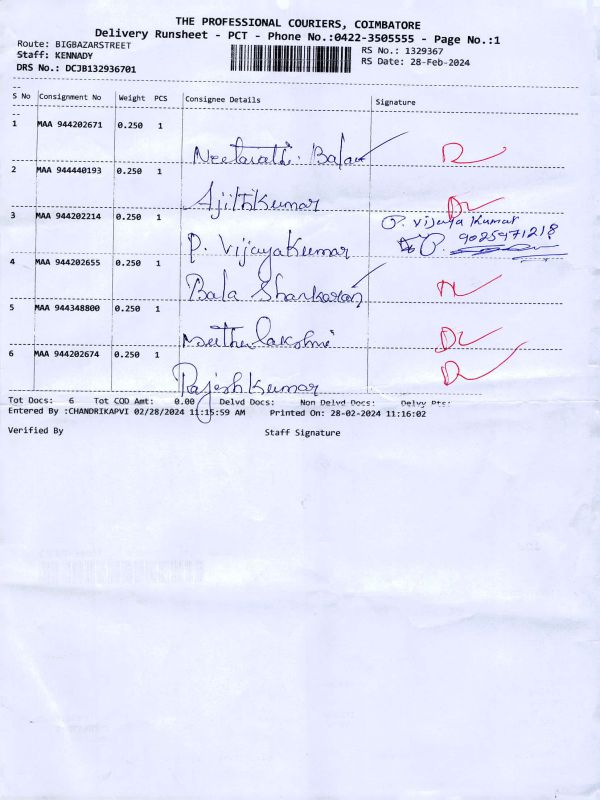 THE PROFESSIONAL COURIERS, COIMBATORE
Delivery Runsheet - PCT - Phone No.:0422-3505555 - Page No.:1
Route: BIGBAZARSTREET
RS No.: 1329367
Staff: KENNADY
RS Date: 28-Feb-2024
DRS No.: DCJB132936701
S No Consignment No Weight PCS Consignee Details Signature
1 MAA 944202671 0.250 1
Neelavathi. Bala
2 MAA 944440193 0.250 1
AjithKumar DL
3 MAA 944202214 0.250 1 P. Vijaya Kumar
P. VijayaKumar P. 9025971218
4 MAA 944202655 0.250 1
Bala Shankaran
5 MAA 944348800 0.250 1
Muthulakshmi DL
6 MAA 944202674 0.250 1
RajeshKumar
Tot Docs: 6 Tot COD Amt: 0.00 Delvd Docs: Non Delvd Docs: Delvy Pts:
Entered By :CHANDRIKAPVI 02/28/2024 11:15:59 AM Printed On: 28-02-2024 11:16:02
Verified By Staff Signature